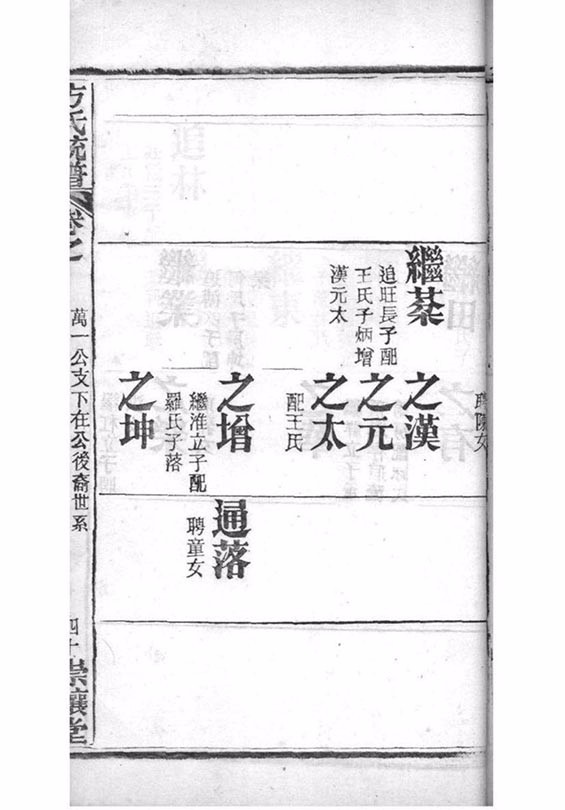 聘陳女
繼棊
追旺長子配
王氏子炳增
漢元太
之漢
之元
之太
配王氏
之增
繼淮立子配
羅氏子落
通落
聘童女
之坤
方氏統譜
卷之
萬一公支下在公後裔世系
四十
崇讓堂